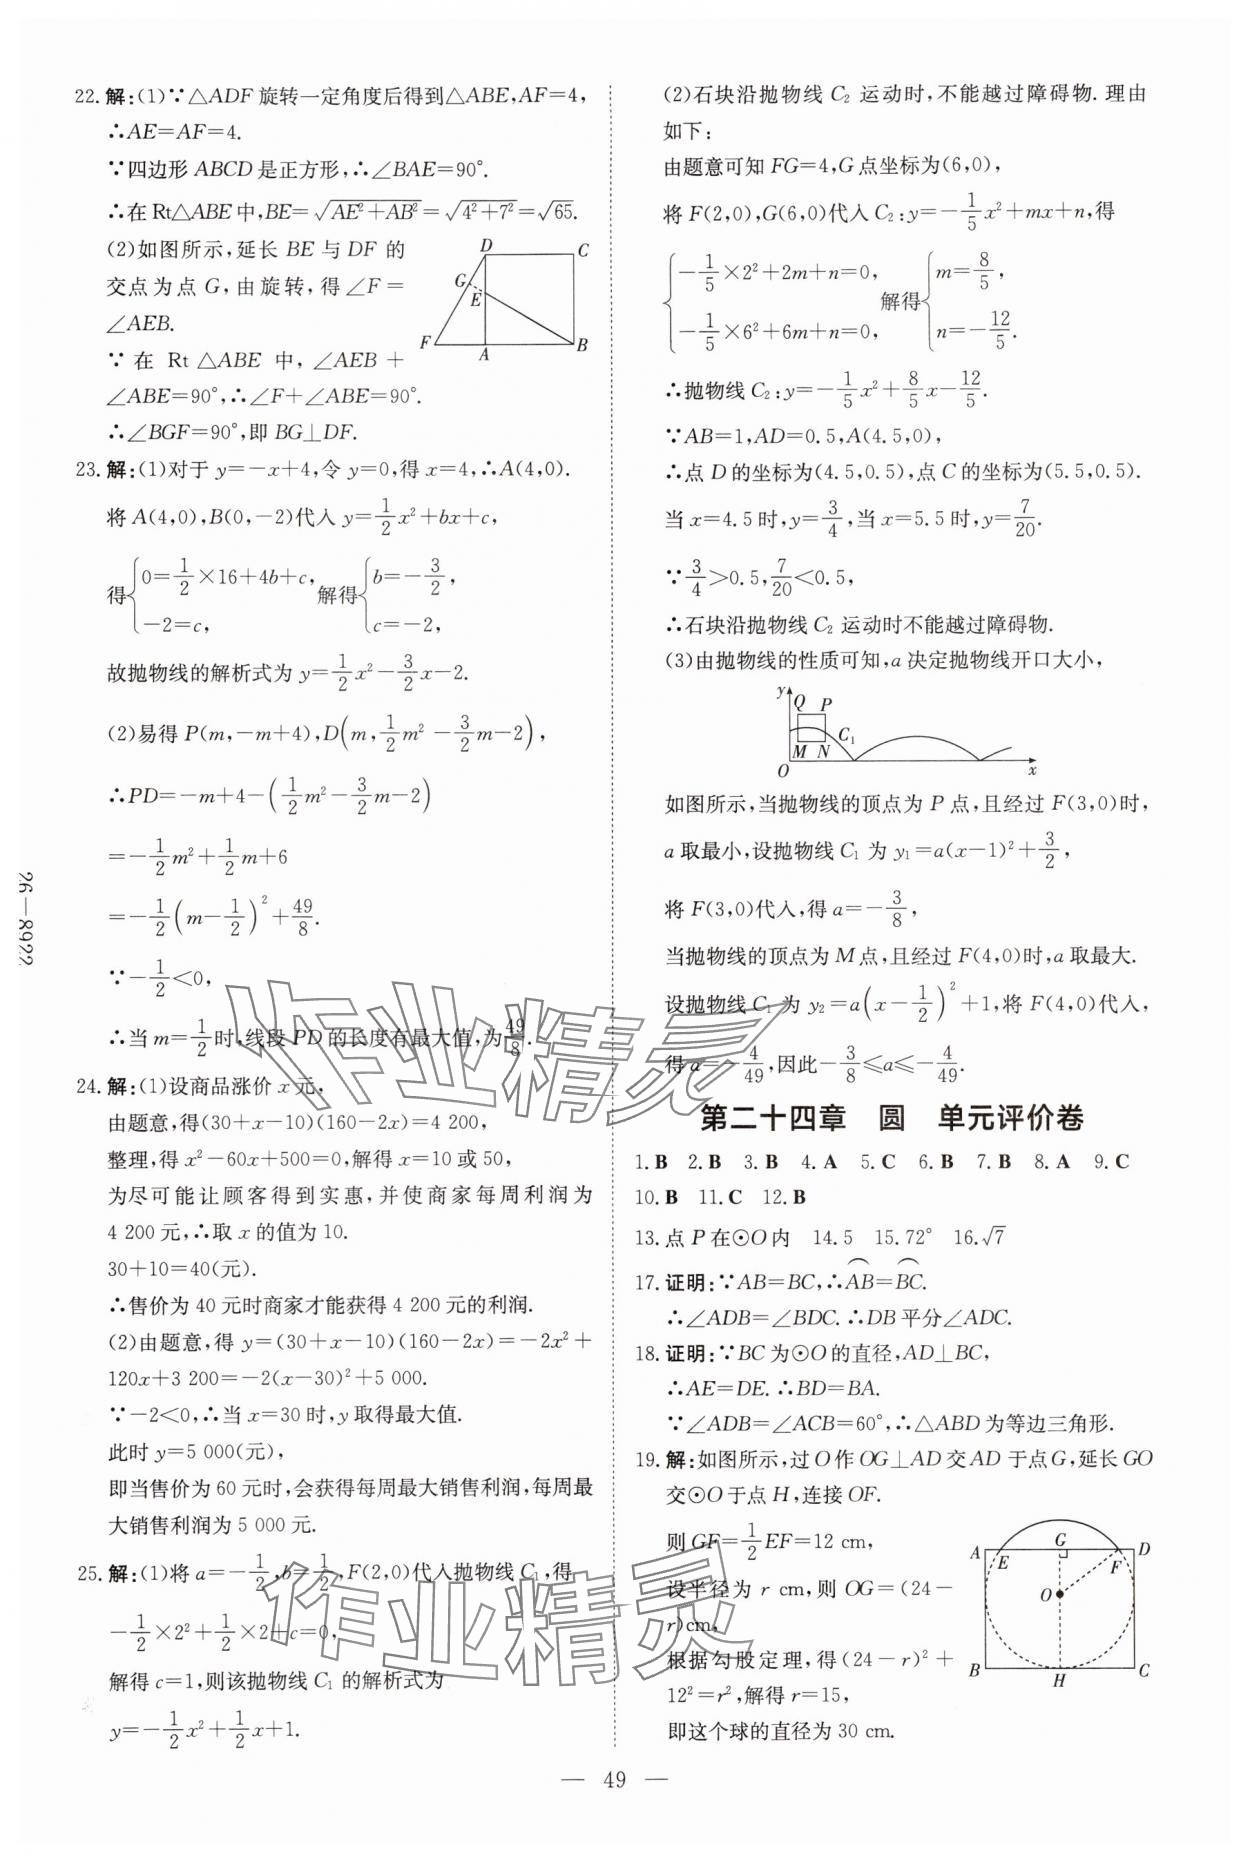 22.解:(1)∵△ADF旋转一定角度后得到△ABE,AF=4,
∴AE=AF=4.
∵四边形ABCD是正方形,∴∠BAE=90°.
∴在Rt△ABE中,BE=√(AE²+AB²)=√(4²+7²)=√65.
(2)如图所示,延长BE与DF的
交点为点G,由旋转,得∠F=
∠AEB.
∵在Rt△ABE中,∠AEB+
∠ABE=90°,∴∠F+∠ABE=90°.
∴∠BGF=90°,即BG⊥DF.
D C G E F A B
23.解:(1)对于y=-x+4,令y=0,得x=4,∴A(4,0).
将A(4,0),B(0,-2)代入y=1/2x²+bx+c,
得{0=1/2×16+4b+c, -2=c, 解得{b=-3/2, c=-2,
故抛物线的解析式为y=1/2x²-3/2x-2.
(2)易得P(m,-m+4),D(m,1/2m²-3/2m-2),
∴PD=-m+4-(1/2m²-3/2m-2)
=-1/2m²+1/2m+6
=-1/2(m-1/2)²+49/8.
∵-1/2<0,
∴当m=1/2时,线段PD的长度有最大值,为49/8.
24.解:(1)设商品涨价x元,
由题意,得(30+x-10)(160-2x)=4 200,
整理,得x²-60x+500=0,解得x=10或50,
为尽可能让顾客得到实惠,并使商家每周利润为
4 200元,∴取x的值为10.
30+10=40(元).
∴售价为40元时商家才能获得4 200元的利润.
(2)由题意,得y=(30+x-10)(160-2x)=-2x²+
120x+3 200=-2(x-30)²+5 000.
∵-2<0,∴当x=30时,y取得最大值.
此时y=5 000(元),
即当售价为60元时,会获得每周最大销售利润,每周最
大销售利润为5 000元.
25.解:(1)将a=-1/2,b=1/2,F(2,0)代入抛物线C₁,得
-1/2×2²+1/2×2+c=0,
解得c=1,则该抛物线C₁的解析式为
y=-1/2x²+1/2x+1.
(2)石块沿抛物线C₂运动时,不能越过障碍物.理由
如下:
由题意可知FG=4,G点坐标为(6,0),
将F(2,0),G(6,0)代入C₂:y=-1/5x²+mx+n,得
{-1/5×2²+2m+n=0, -1/5×6²+6m+n=0, 解得{m=8/5, n=-12/5.
∴抛物线C₂:y=-1/5x²+8/5x-12/5.
∵AB=1,AD=0.5,A(4.5,0),
∴点D的坐标为(4.5,0.5),点C的坐标为(5.5,0.5).
当x=4.5时,y=3/4,当x=5.5时,y=7/20.
∵3/4>0.5,7/20<0.5,
∴石块沿抛物线C₂运动时不能越过障碍物.
(3)由抛物线的性质可知,a决定抛物线开口大小,
y Q P M N C₁ O x
如图所示,当抛物线的顶点为P点,且经过F(3,0)时,
a取最小,设抛物线C₁为y₁=a(x-1)²+3/2,
将F(3,0)代入,得a=-3/8,
当抛物线的顶点为M点,且经过F(4,0)时,a取最大.
设抛物线C₁为y₂=a(x-1/2)²+1,将F(4,0)代入,
得a=-4/49,因此-3/8≤a≤-4/49.
第二十四章 圆 单元评价卷
1.B 2.B 3.B 4.A 5.C 6.B 7.B 8.A 9.C
10.B 11.C 12.B
13.点P在⊙O内 14.5 15.72° 16.√7
17.证明:∵AB=BC,∴⌒AB=⌒BC.
∴∠ADB=∠BDC.∴DB平分∠ADC.
18.证明:∵BC为⊙O的直径,AD⊥BC,
∴AE=DE.∴BD=BA.
∵∠ADB=∠ACB=60°,∴△ABD为等边三角形.
19.解:如图所示,过O作OG⊥AD交AD于点G,延长GO
交⊙O于点H,连接OF.
则GF=1/2EF=12 cm,
设半径为r cm,则OG=(24-
r)cm,
根据勾股定理,得(24-r)²+
12²=r²,解得r=15,
即这个球的直径为30 cm.
A E G F D O B H C
— 49 —
26—8922
作业精灵
作业精灵